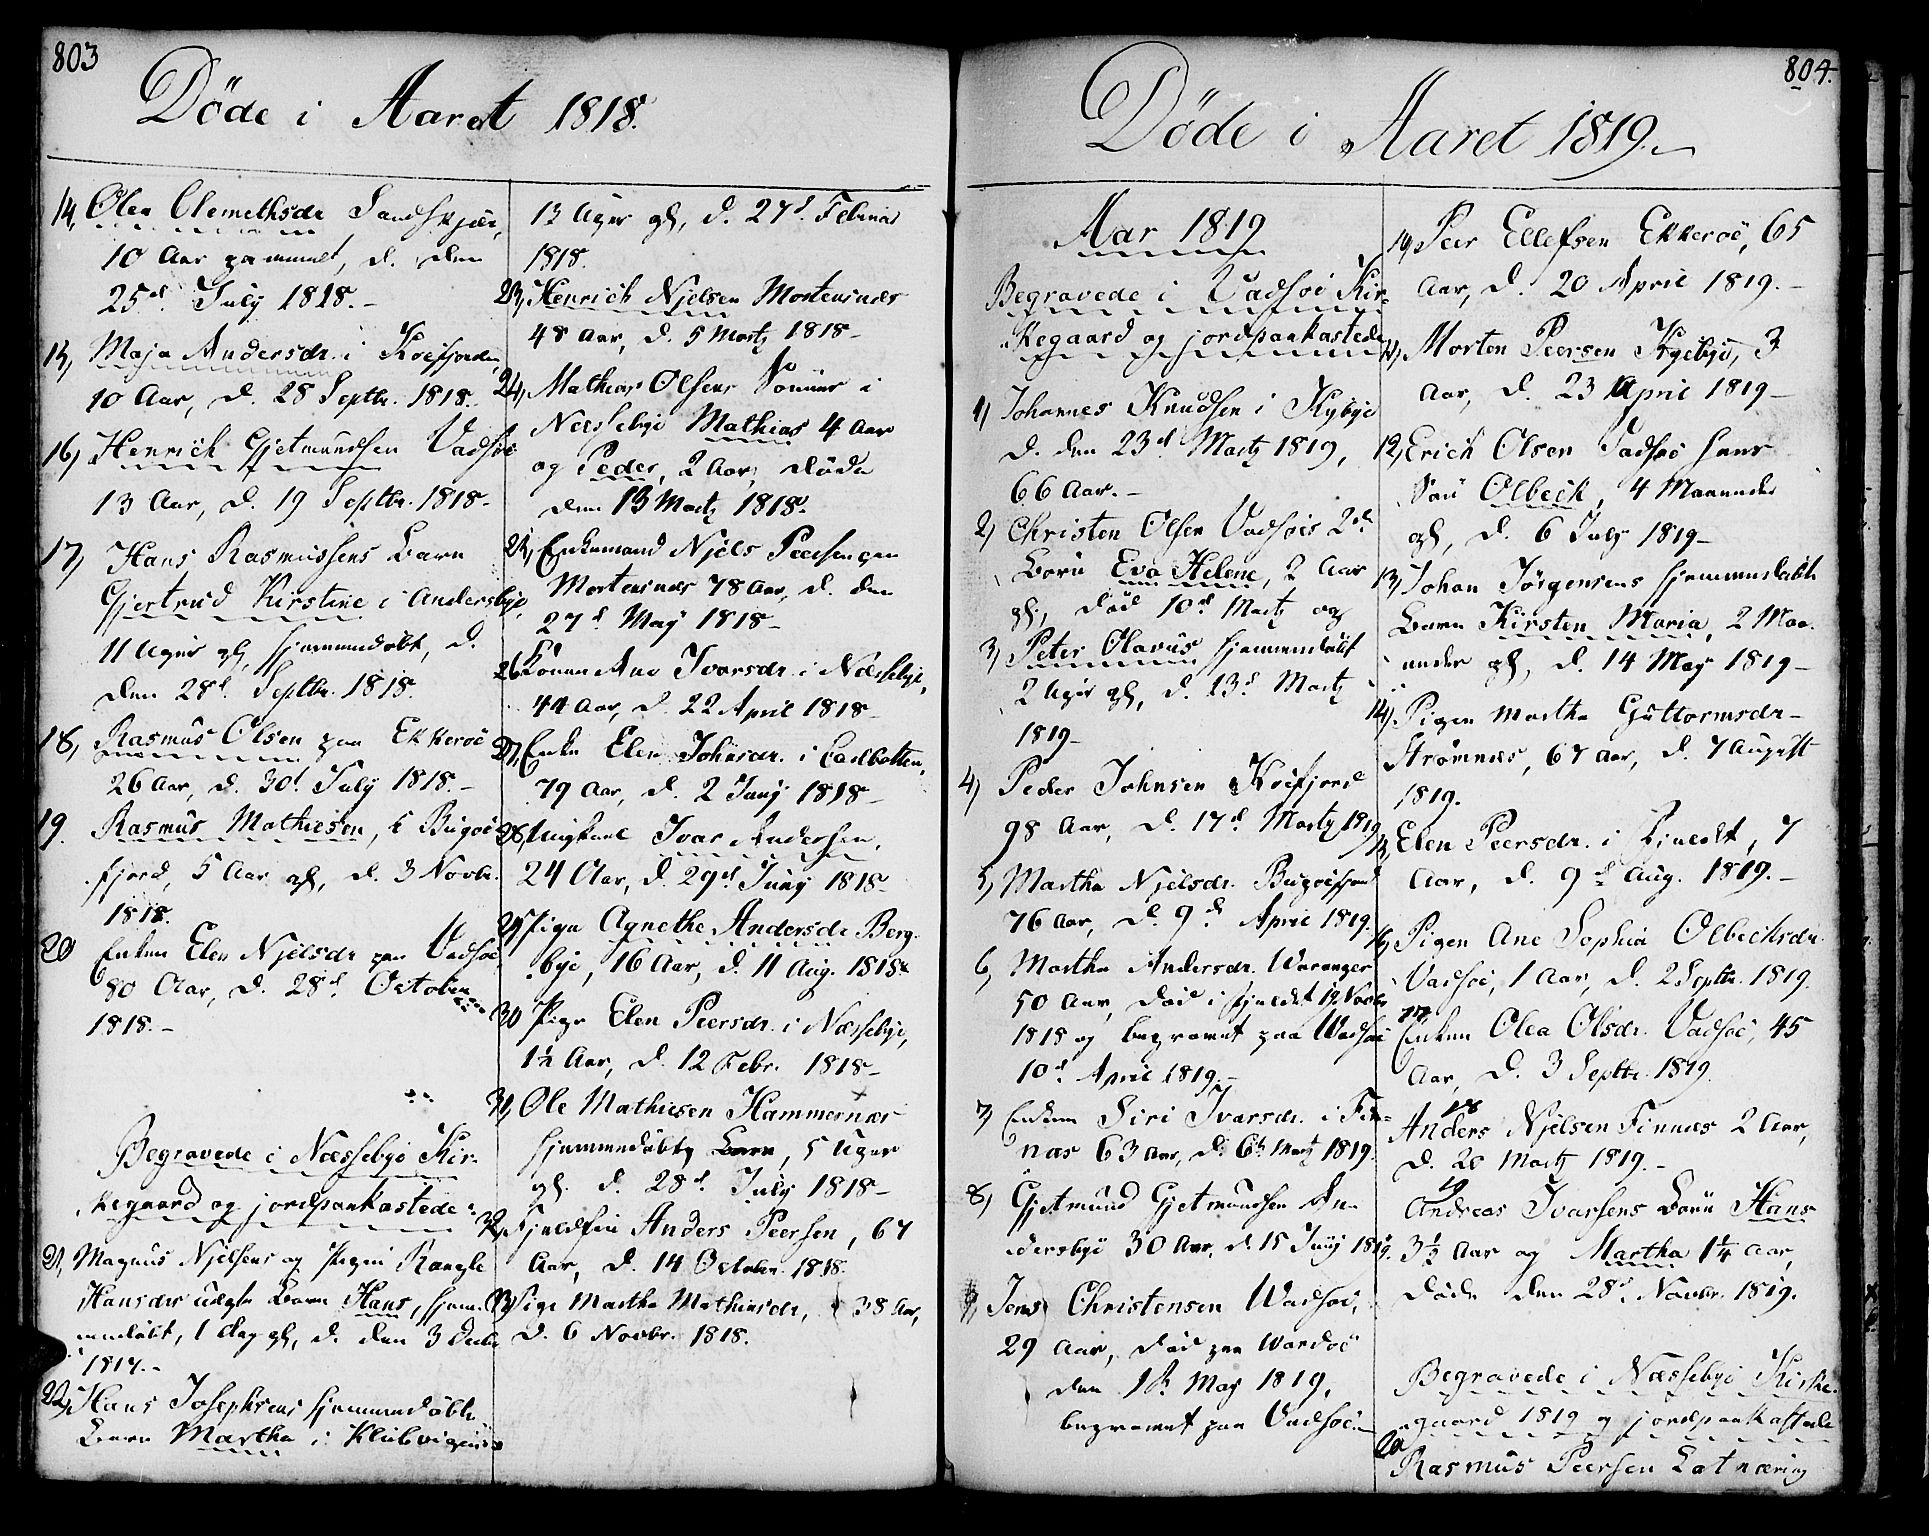 803
Døde i Aaret 1818.
14, Olea Clemethsdr Sandskjær,
10 Aar gammel, d. den
25d July 1818.-
15, Maja Andersdr. i Koefjorden,
10 Aar, d. 28 Septbr. 1818.
16, Henrich Gjetmundsen Vadsöe
13 Aar, d. 19 Septbr. 1818-
17, Hans Rasmussens Barn
Gjertrud Kirstine i Andersbye,
11 Uger gl, hjemmedøbt, d.
den 28d Septbr. 1818.
18, Rasmus Olsen paa Ekkeröe
26 Aar, d. 30d July 1818.-
19. Rasmus Mathiesen, i Bugöe
fjord, 5 Aar gl, d. 3 Novbr.
1818.
20 Enken Elen Njelsdr paa Vadsöe
80 Aar, d. 28d October
1818.-
Begravede i Næssebye Kir-
kegaard og jordpaakastede:
21, Magnus Njelsens og Pigen Rangle
Hansdr uægte Barn Hans, hjem-
medøbt, 1 dag gl, d. den 3 Decbr
1817.-
22, Hans Josephsens hjemmedøbte
Barn Martha i Klubvignæs
13 Uger gl, d. 27d Februar
1818.
23, Henrich Njelsen Mortensnæs
48 Aar, d. 5 Martz 1818-
24, Mathias Olsens Sønner i
Næssebye Mathias 4 Aar
og Peder, 2 Aar, døde
den 13 Martz 1818.
25, Enkemand Njels Peersen paa
Mortensnæs 78 Aar, d. den
27d May 1818-
26 Konen Ane Ivarsdr. i Næssebye,
44 Aar, d. 22 April 1818-
27, Enke Elen Johnsdr. i Carlbotten,
79 Aar, d. 2 Juny 1818-
28, Ungkarl Ivar Andersen,
24 Aar, d. 29d Juny 1818-
29, Pige Agnethe Andersdr Berg-
bye, 16 Aar, d. 11 Aug. 1818
30 Pige Elen Peersdr. i Næssebye,
1½ Aar, d. 12 Febr. 1818-
31, Ole Mathiesen Hammernæs
hjemmedøbte Barn, 5 Uger
gl. d. 28d July 1818-
32, Fjeldfin Anders Peersen, 67
Aar, d. 14 October 1818.
33, Pige Martha Mathiesdr, 38 Aar,
d. 6 Novbr. 1818.
804.
Døde i Aaret 1819.-
Aar 1819
Begravede i Vadsöe Kir-
kegaard og jordpaakastede
1, Johannes Knudsen i Kybye
d. den 23d Martz 1819,
66 Aar.-
2, Christen Olsen Vadsöes 2de
Børn Eva Helene, 2 Aar
gl, død 10d Martz og
3, Peter Olavus hjemmedøbt
2 Uger gl, d. 13d Martz
1819-
4, Peder Johnsen Koefjord
98 Aar, d. 17d Martz 1819
5, Martha Njelsdr. Bugöefjord
76 Aar, d. 9d April 1819.
6, Martha Andersdr. Waranger
50 Aar, død i Fjeldet 19 Novbr
1818 og begravet paa Wadsöe
10d April 1819.-
7, Enken Siri Ivarsdr. i Fin-
næs 63 Aar, d. 6te Martz 1819.
8, Gjetmund Gjetmundsen An-
dersbye 30 Aar, d. 15 Juny 1819.
9, Jens Christensen Wadsöe,
29 Aar, død paa Wardöe
den 13 May 1819,
begravet paa Vadsöe.-
10, Peer Ellefsen Ekkeröe, 65
Aar, d. 20 April 1819.-
11, Morten Peersen Kyebye, 3
Aar, d. 23 April 1819-
12, Erich Olsen Vadsöe hans
Søn Olbeck, 4 Maaneder
gl, d. 6 July 1819-
13, Johan Jörgensens hjemmedøbte
Barn Kirsten Maria, 2 Maa-
neder gl, d. 14 May 1819-
14, Pigen Martha Guttormsdr-
Strømnæs, 67 Aar, d. 7 August
1819.
15, Elen Peersdr. i Fjeldt, 7
Aar, d. 9d Aug. 1819.-
16, Pigen Ane Sophia Olbecksdr
Vadsöe, 1 Aar, d. 2 Septbr. 1819.
17, Enken Olea Olsdr. Vadsöe, 45
Aar, d. 3 Septbr. 1819.
18 Anders Njelsen Finnæs 2 Aar,
d. 28 Martz 1819.-
19 Andreas Ivarsens Børn Hans
3½ Aar og Martha 1¼ Aar,
døde den 28d Novbr. 1819.
Begravede i Næssebye Kirke-
gaard 1819 og jordpaakastede
20 Rasmus Peersen Latnæring